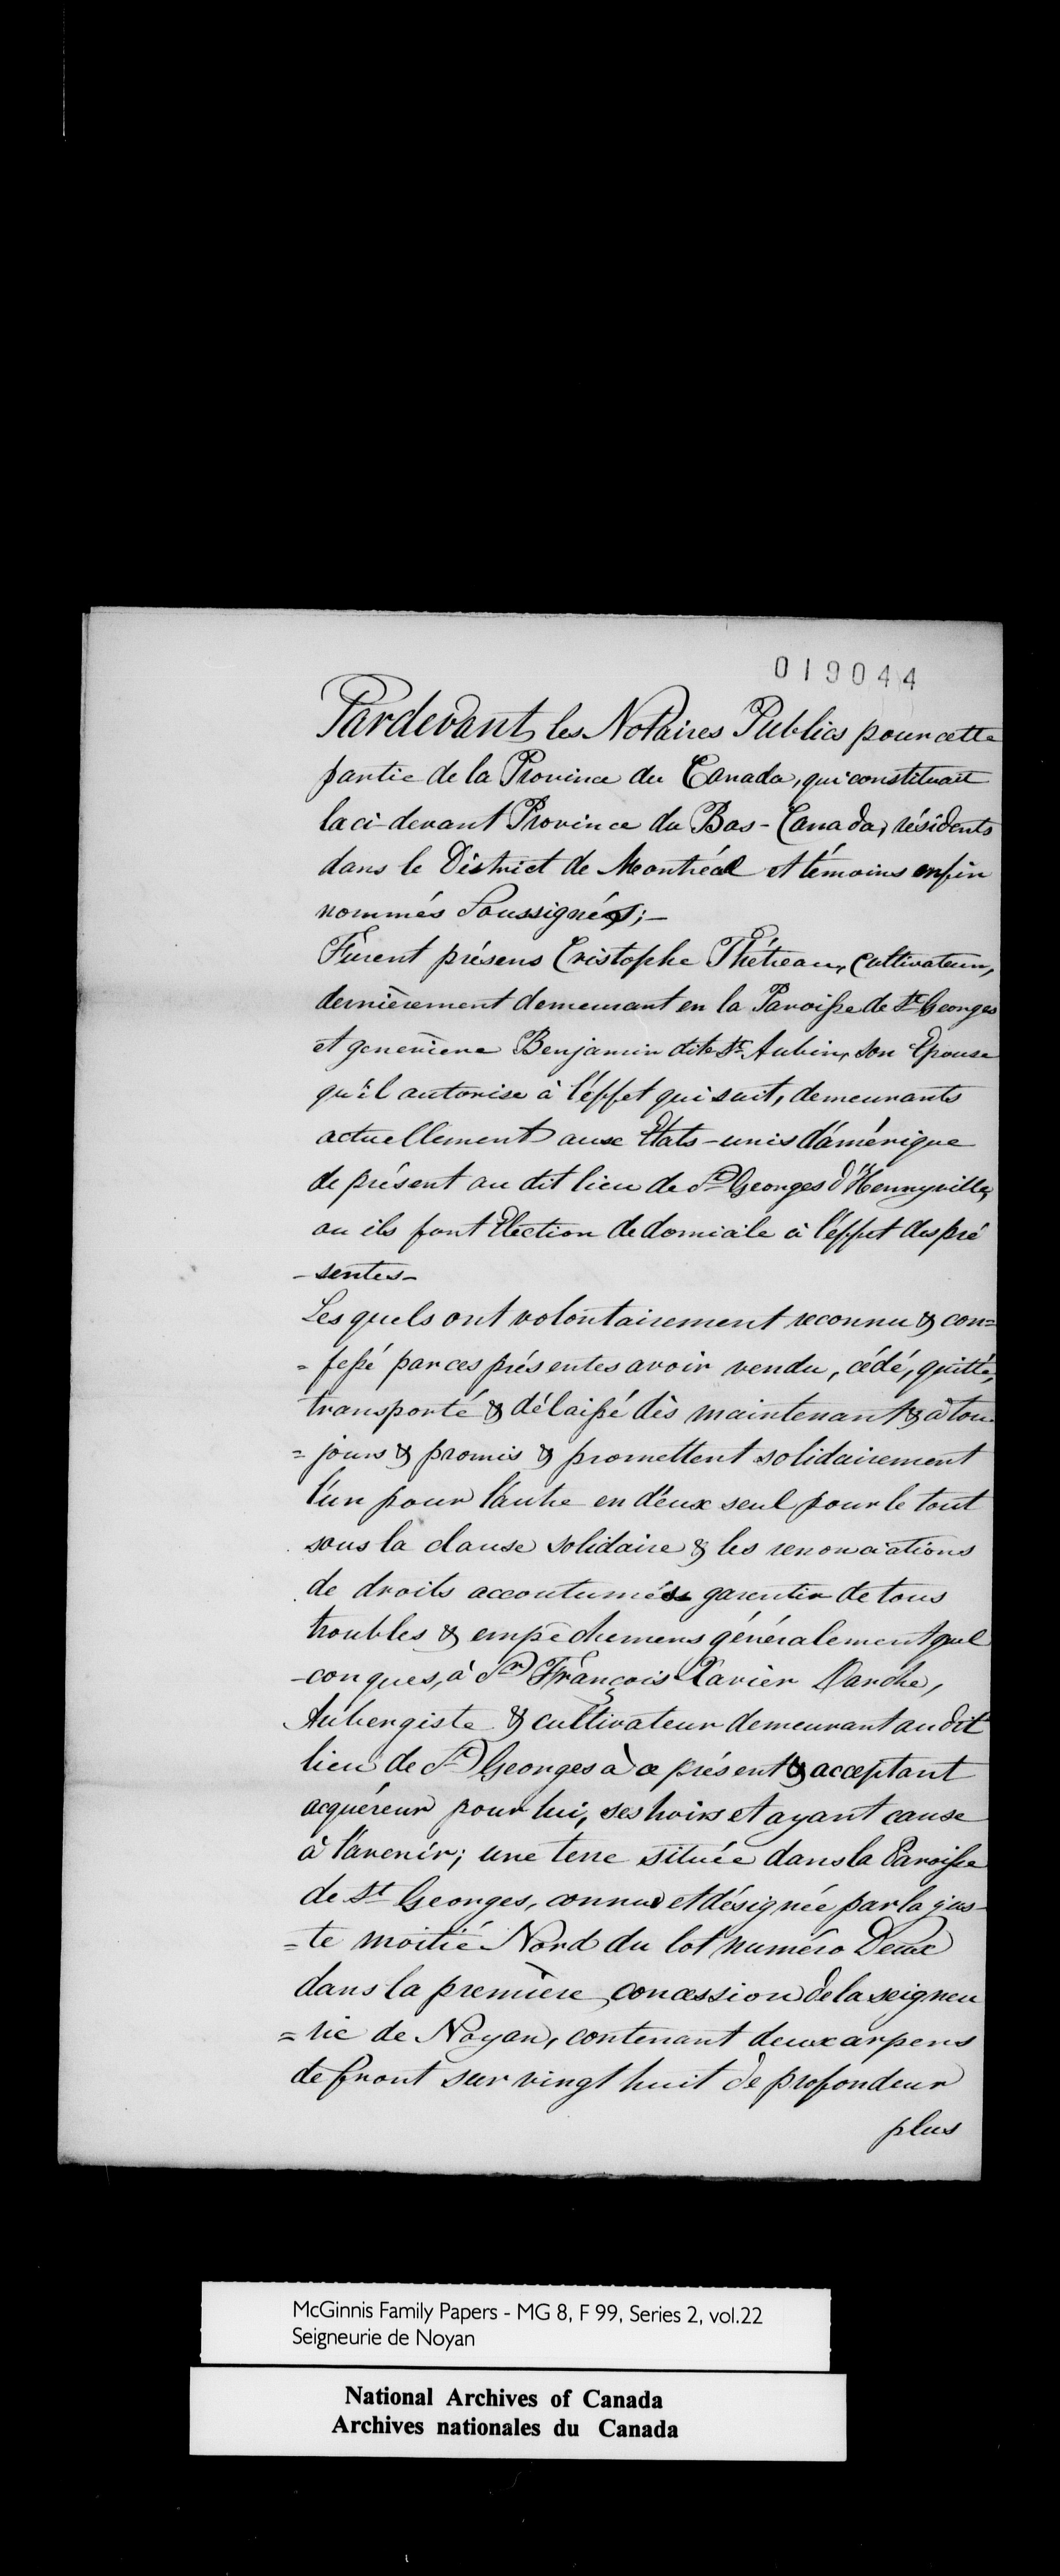 019044
Pardevant les Notaires Publics pour cette
partie de la Province du Canada, qui constituait
la ci-devant Province du Bas-Canada, résidents
dans le District de Montréal et témoins enfin
nommés Soussignés;-
Furent présens Cristophe Thétreau, Cultivateur,
dernièrement demeurant en la Paroisse de St. Georges
et genevieve Benjamin dite St. Aubin, son Epouse
qu'il autorise à l'effet qui suit, demeurants
actuellement aux Etats-unis d'amérique
de présent au dit lieu de St. Georges d'Henryville,
ou ils font Election de domicile à l'effet des pré
-sentes-
Les quels ont volontairement reconnu & con=
=fessé par ces présentes avoir vendu, cédé, quitté,
transporté & délaissé dès maintenant & à tou-
=jours & promis & promettent solidairement
l'un pour l'autre en d'eux seul pour le tout
sous la clause solidaire & les renonciations
de droits accoutumés garentir de tous
troubles & empêchemens généralement quel
-conques, à Sr. François Xavier Darche,
Aubergiste & cultivateur demeurant au dit
lieu de St. Georges à ce présent & acceptant
acquéreur pour lui, ses hoirs et ayant cause
à l'avenir; une terre située dans la Paroisse
de St Georges, connue et désignée par la jus-
=te moitié Nord du lot numéro Deux
dans la première concession de la seigneu
=rie de Noyan, contenant deux arpens
de front sur vingt huit de profondeur
plus
McGinnis Family Papers - MG 8, F 99, Series 2, vol.22
Seigneurie de Noyan
National Archives of Canada
Archives nationales du Canada